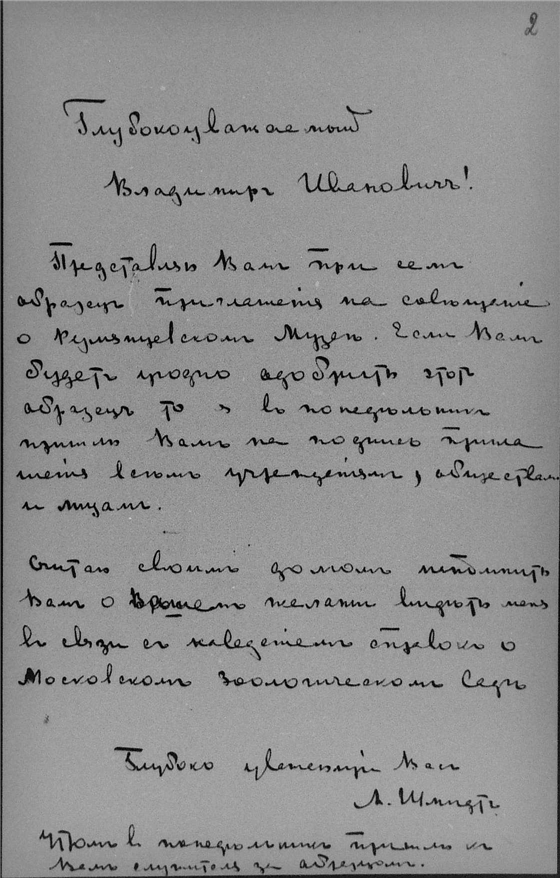 2
Глубокоуважаемый
Владимиръ Ивановичъ!
Представляю Вамъ при семъ
образецъ приглашенія на совѣщаніе
о Румянцевскомъ Музеѣ. Если Вамъ
будетъ угодно одобрить этотъ
образецъ то я въ понедѣльникъ
пришлю Вамъ на подпись пригла
шенія всѣмъ учрежденіямъ, обществамъ
и лицамъ.
Считаю своимъ долгомъ напомнить
Вамъ о Вашемъ желаніи видѣть меня
въ связи съ наведеніемъ справокъ о
Московскомъ Зоологическомъ Садѣ
Глубоко уважающій Васъ
А. Шмидтъ
Утромъ въ понедѣльникъ пришлю къ
Вамъ служителя за образцомъ.